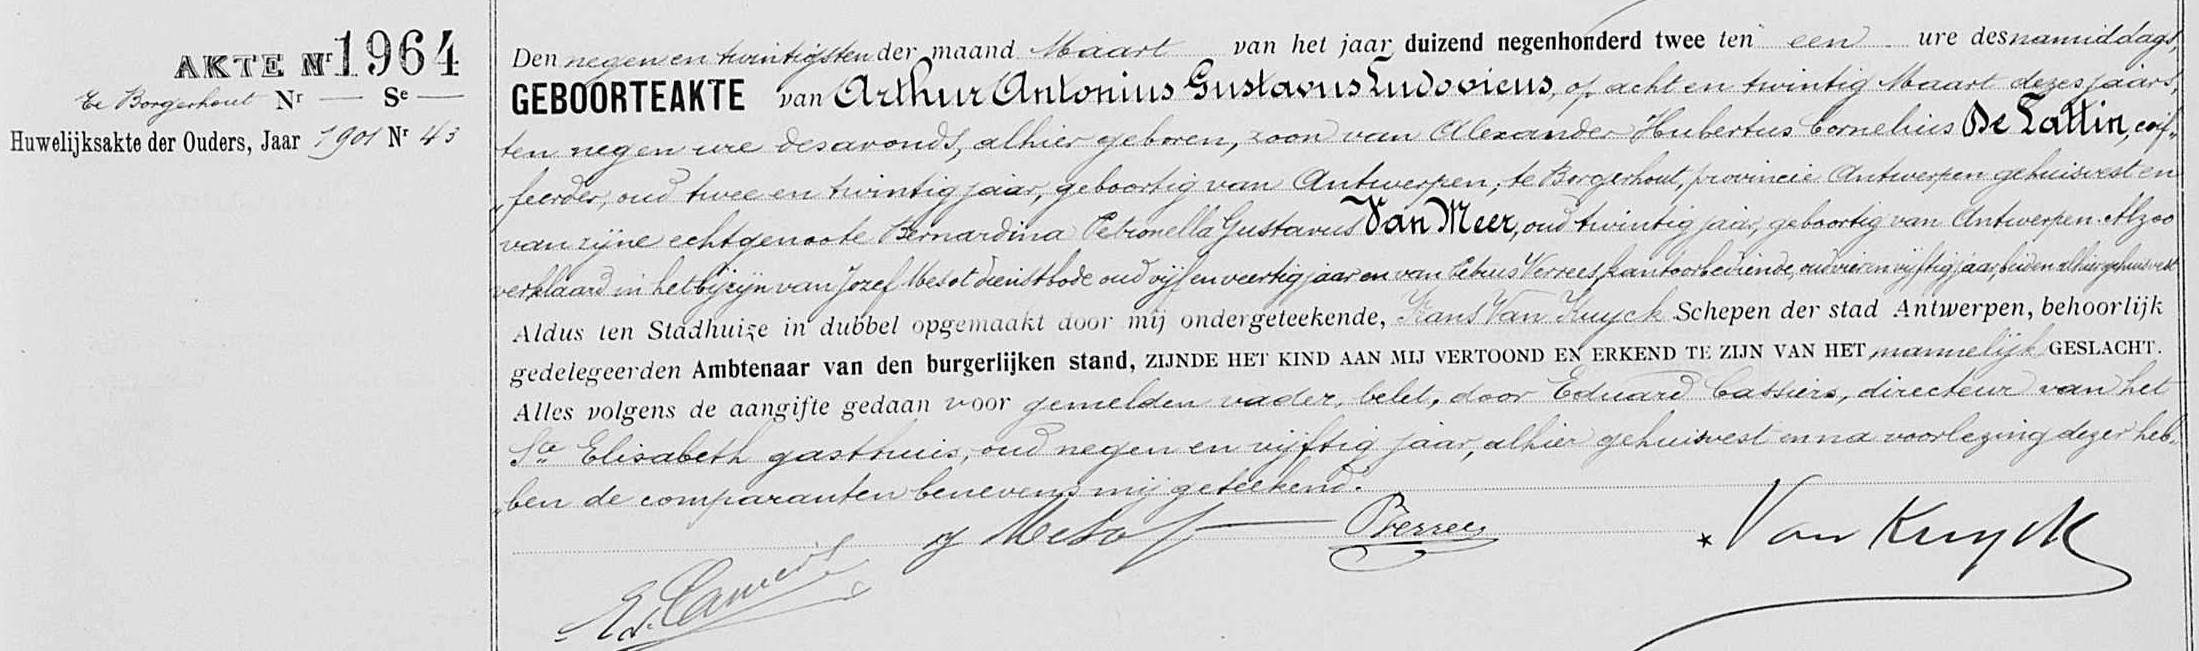 AKTE Nr 1964
te Borgerhout Nr — Se —
Huwelijksakte der Ouders, Jaar 1901 Nr 43
Den negen en twintigsten der maand Maart van het jaar duizend negenhonderd twee ten een ure des namiddags,
GEBOORTEAKTE van Arthur Antonius Gustavus Ludovicus, op acht en twintig Maart dezes jaars,
ten negen ure des avonds, alhier geboren, zoon van Alexander Hubertus Cornelius De Lattin, coif-
„feerder, oud twee en twintig jaar, geboortig van Antwerpen, te Borgerhout, provincie Antwerpen gehuisvest en
van zijne echtgenoote Bernardina Petronella Gustavus Van Meer, oud twintig jaar, geboortig van Antwerpen. Alzoo
verklaard in het bijzijn van Jozef Mesot dienstbode oud vijf en veertig jaar en van Petrus Verrees, kantoorbediende, oud vier en vijftig jaar, beiden alhier gehuisvest
Aldus ten Stadhuize in dubbel opgemaakt door mij ondergeteekende, Frans Van Kuyck Schepen der stad Antwerpen, behoorlijk
gedelegeerden Ambtenaar van den burgerlijken stand, ZIJNDE HET KIND AAN MIJ VERTOOND EN ERKEND TE ZIJN VAN HET mannelijk GESLACHT.
Alles volgens de aangifte gedaan voor gemelden vader, belet, door Eduard Cassiers, directeur van het
Ste Elisabeth gasthuis, oud negen en vijftig jaar, alhier gehuisvest en na voorlezing dezer heb-
„ben de comparanten benevens mij geteekend.
J Mesot PVerrees Van Kuyck
Ed. Cassiers